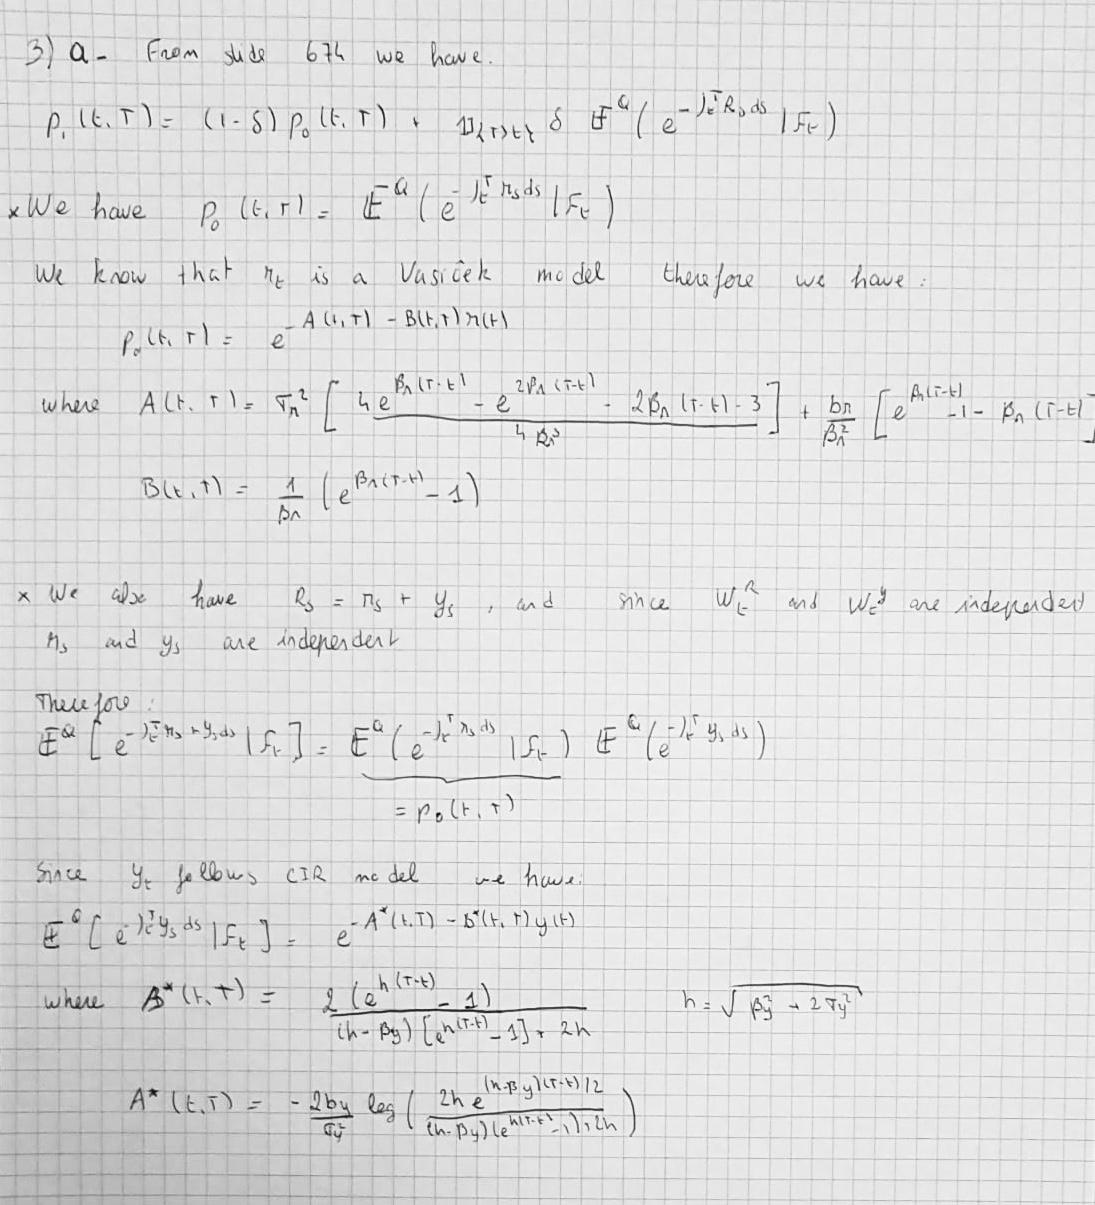 3) a- From slide 674 we have.
p₁(t,T) = (1-δ) p₀(t,T) + 𝟙{τ>t} δ 𝔼^Q(e^{-∫_t^T R_s ds} | F_t)
× We have p₀(t,T) = 𝔼^Q(e^{-∫_t^T r_s ds} | F_t)
We know that r_t is a Vasiček model therefore we have:
p₀(t,T) = e^{-A(t,T) - B(t,T) r(t)}
where A(t,T) = σ_r² [ (4e^{β_r(T-t)} - e^{2β_r(T-t)} - 2β_r(T-t) - 3) / 4β_r³ ] + b_r/β_r² [ e^{β_r(T-t)} - 1 - β_r(T-t) ]
B(t,T) = 1/β_r (e^{β_r(T-t)} - 1)
× We also have R_s = r_s + y_s, and since W_t^R and W_t^y are independent
r_s and y_s are independent
Therefore:
𝔼^Q [e^{-∫_t^T r_s + y_s ds} | F_t] = 𝔼^Q(e^{-∫_t^T r_s ds} | F_t) 𝔼^Q(e^{-∫_t^T y_s ds})
= p₀(t,T)
Since y_t follows CIR model we have:
𝔼^Q [e^{-∫_t^T y_s ds} | F_t] = e^{-A*(t,T) - B*(t,T) y(t)}
where B*(t,T) = 2(e^{h(T-t)} - 1) / ((h-β_y)[e^{h(T-t)} - 1] + 2h) h = √(β_y² + 2σ_y²)
A*(t,T) = - 2b_y/σ_y² log( 2h e^{(h-β_y)(T-t)/2} / ((h-β_y)(e^{h(T-t)} - 1) + 2h) )